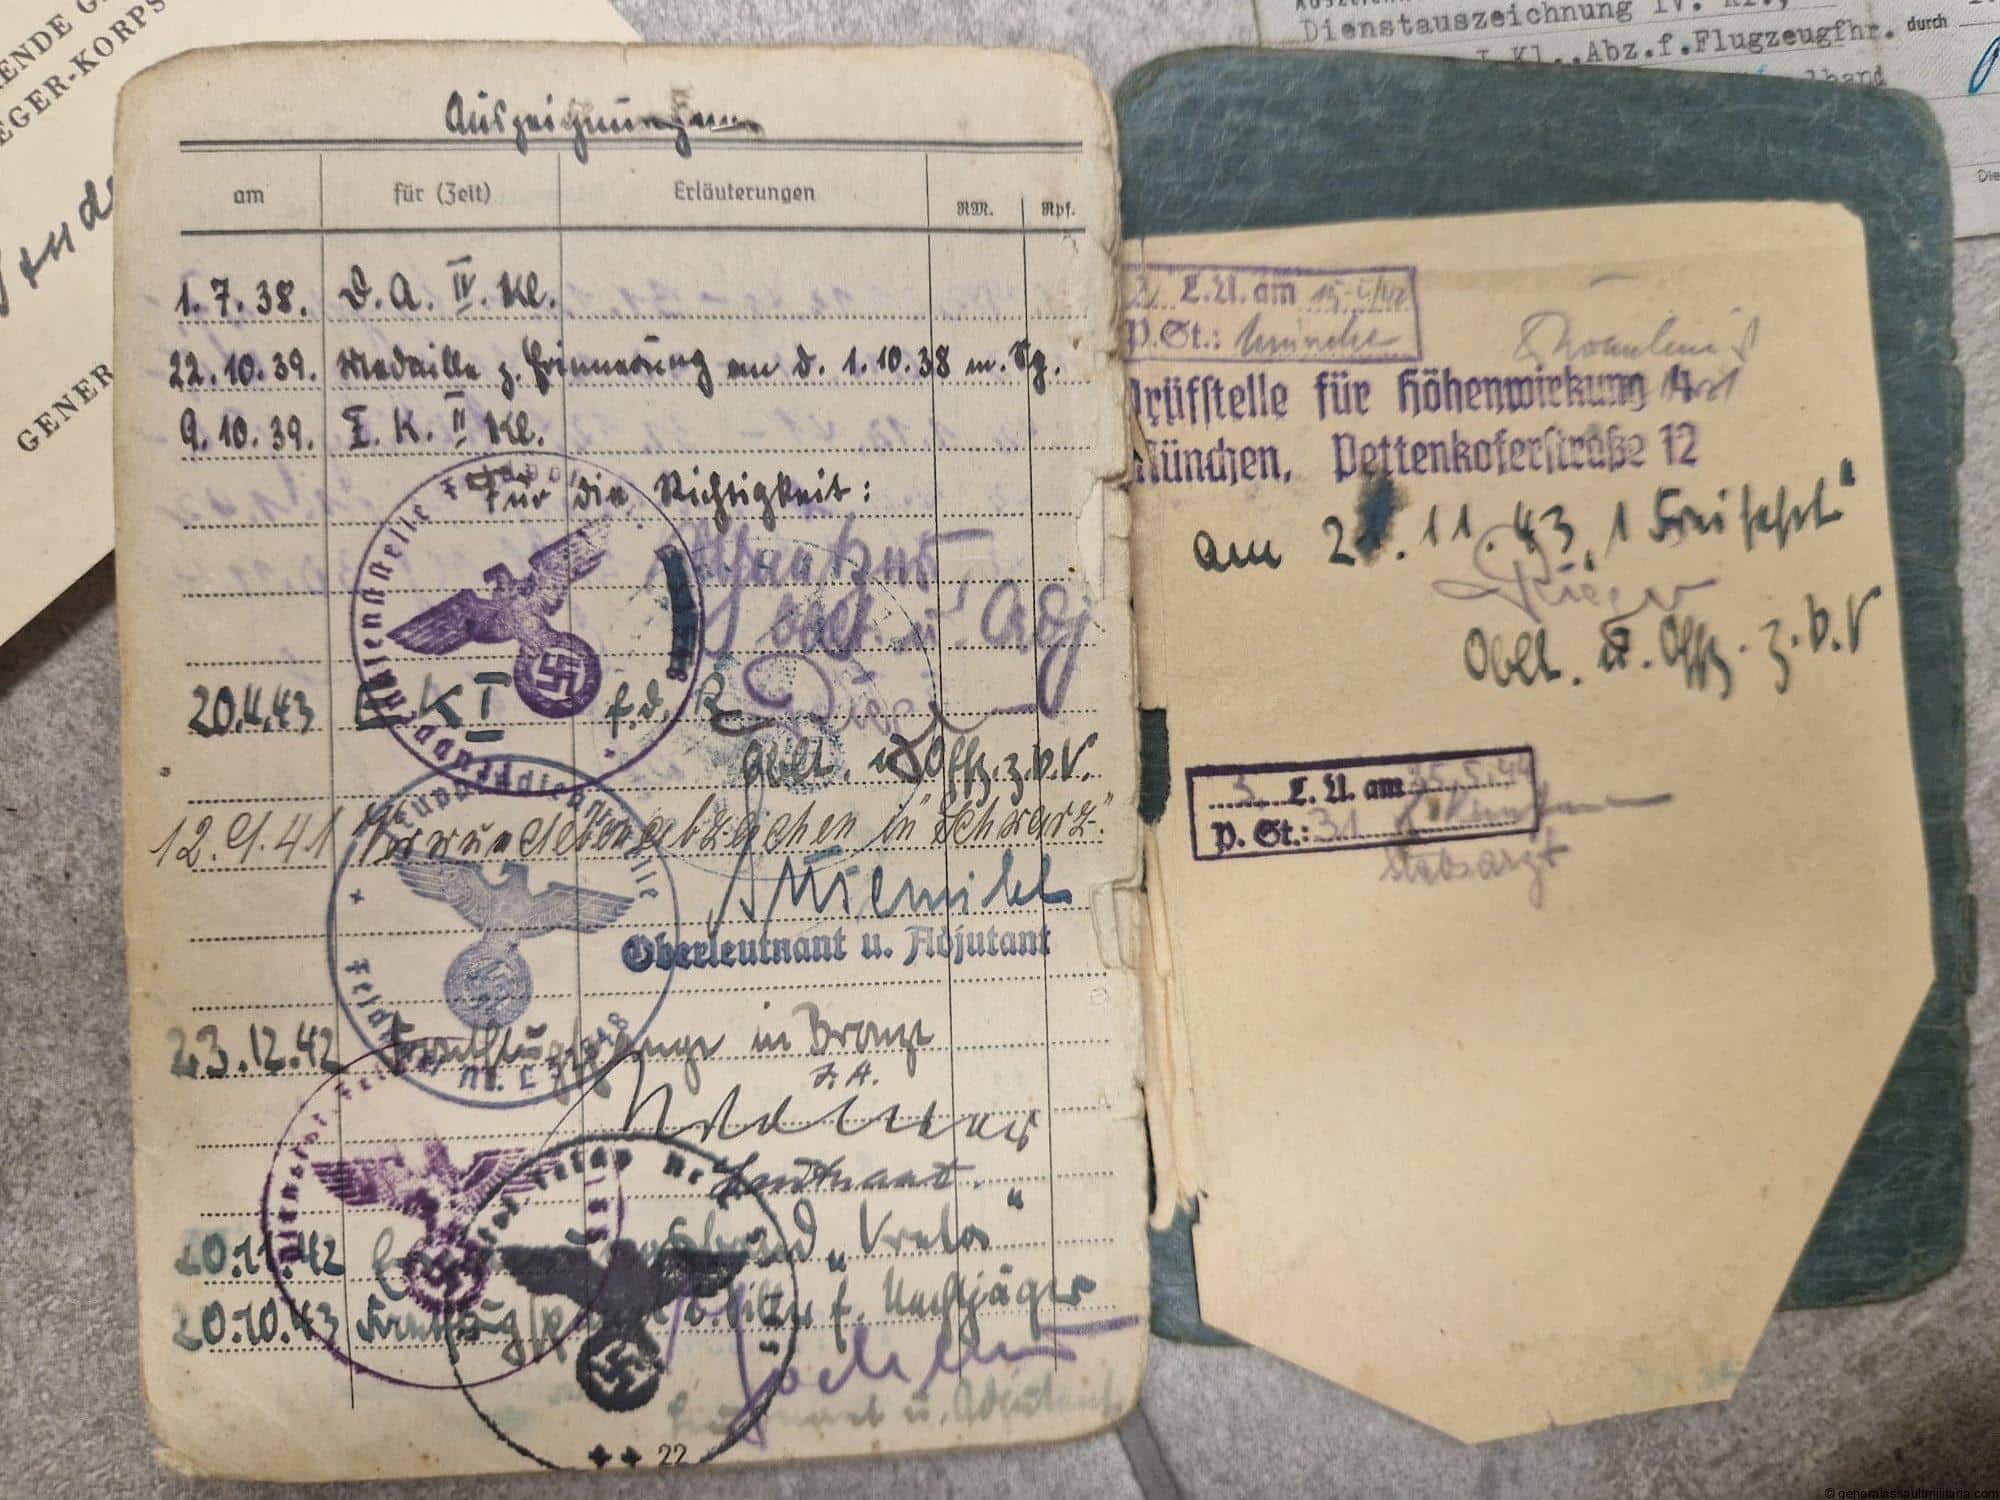 ENDE G
EGER-KORPS
GENER
Dienstauszeichnung IV. Kl.,
I Kl., Abz.f.Flugzeugfhr. durch
lband
Die
Auszeichnungen
am für (Zeit) Erläuterungen RM. Rpf.
1.7.38. D.A. IV. Kl.
22.10.39. Medaille z. Erinnerung an d. 1.10.38 m. Sp.
9.10.39. E.K. II Kl.
Für die Richtigkeit:
Oblt. u. Adj
20.4.43 E K I f.d. R
Oblt. u. Offz. z.b.V.
12.9.41 Verwundetenabzeichen in "Schwarz"
Oberleutnant u. Adjutant
23.12.42 Frontflugspange in Bronze
I.A.
Leutnant.
20.11.42 "Kreta"
20.10.43 Frontflugsp. i. Silber f. Nachtjäger
Leutnant u. Adjutant
22
L.U. am
P.St.: München
Prüfstelle für Höhenwirkung
München, Pettenkoferstraße 12
am 2 .11.43 "1 Freifahrt"
Oblt. u. Offz. z.b.V
3. L.U. am 25.5.44
P. St.: 31
Stabsarzt
© generalassaultmilitaria.com